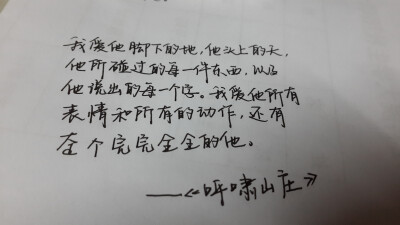 我爱他脚下的地，他头上的天，
他所碰过的每一件东西，以及
他说出的每一个字。我爱他所有
表情和所有的动作，还有
整个完完全全的他。
——《呼啸山庄》